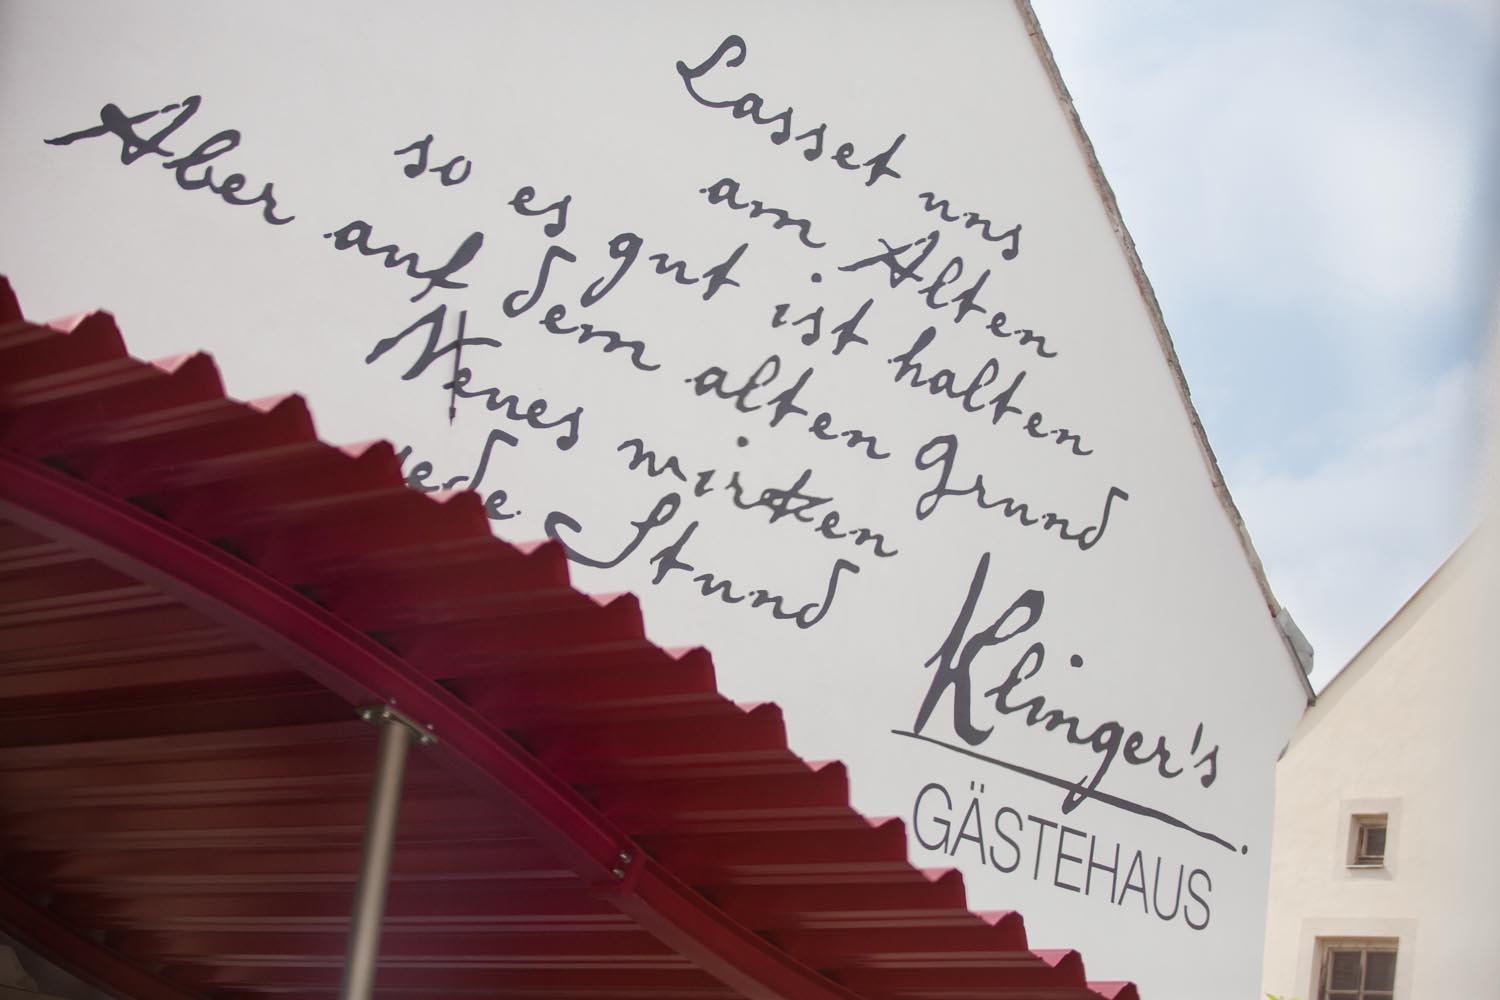 Lasset uns
am Alten
so es gut ist halten
Aber auf dem alten Grund
Neues wirken
jede Stund
Klinger's
GÄSTEHAUS